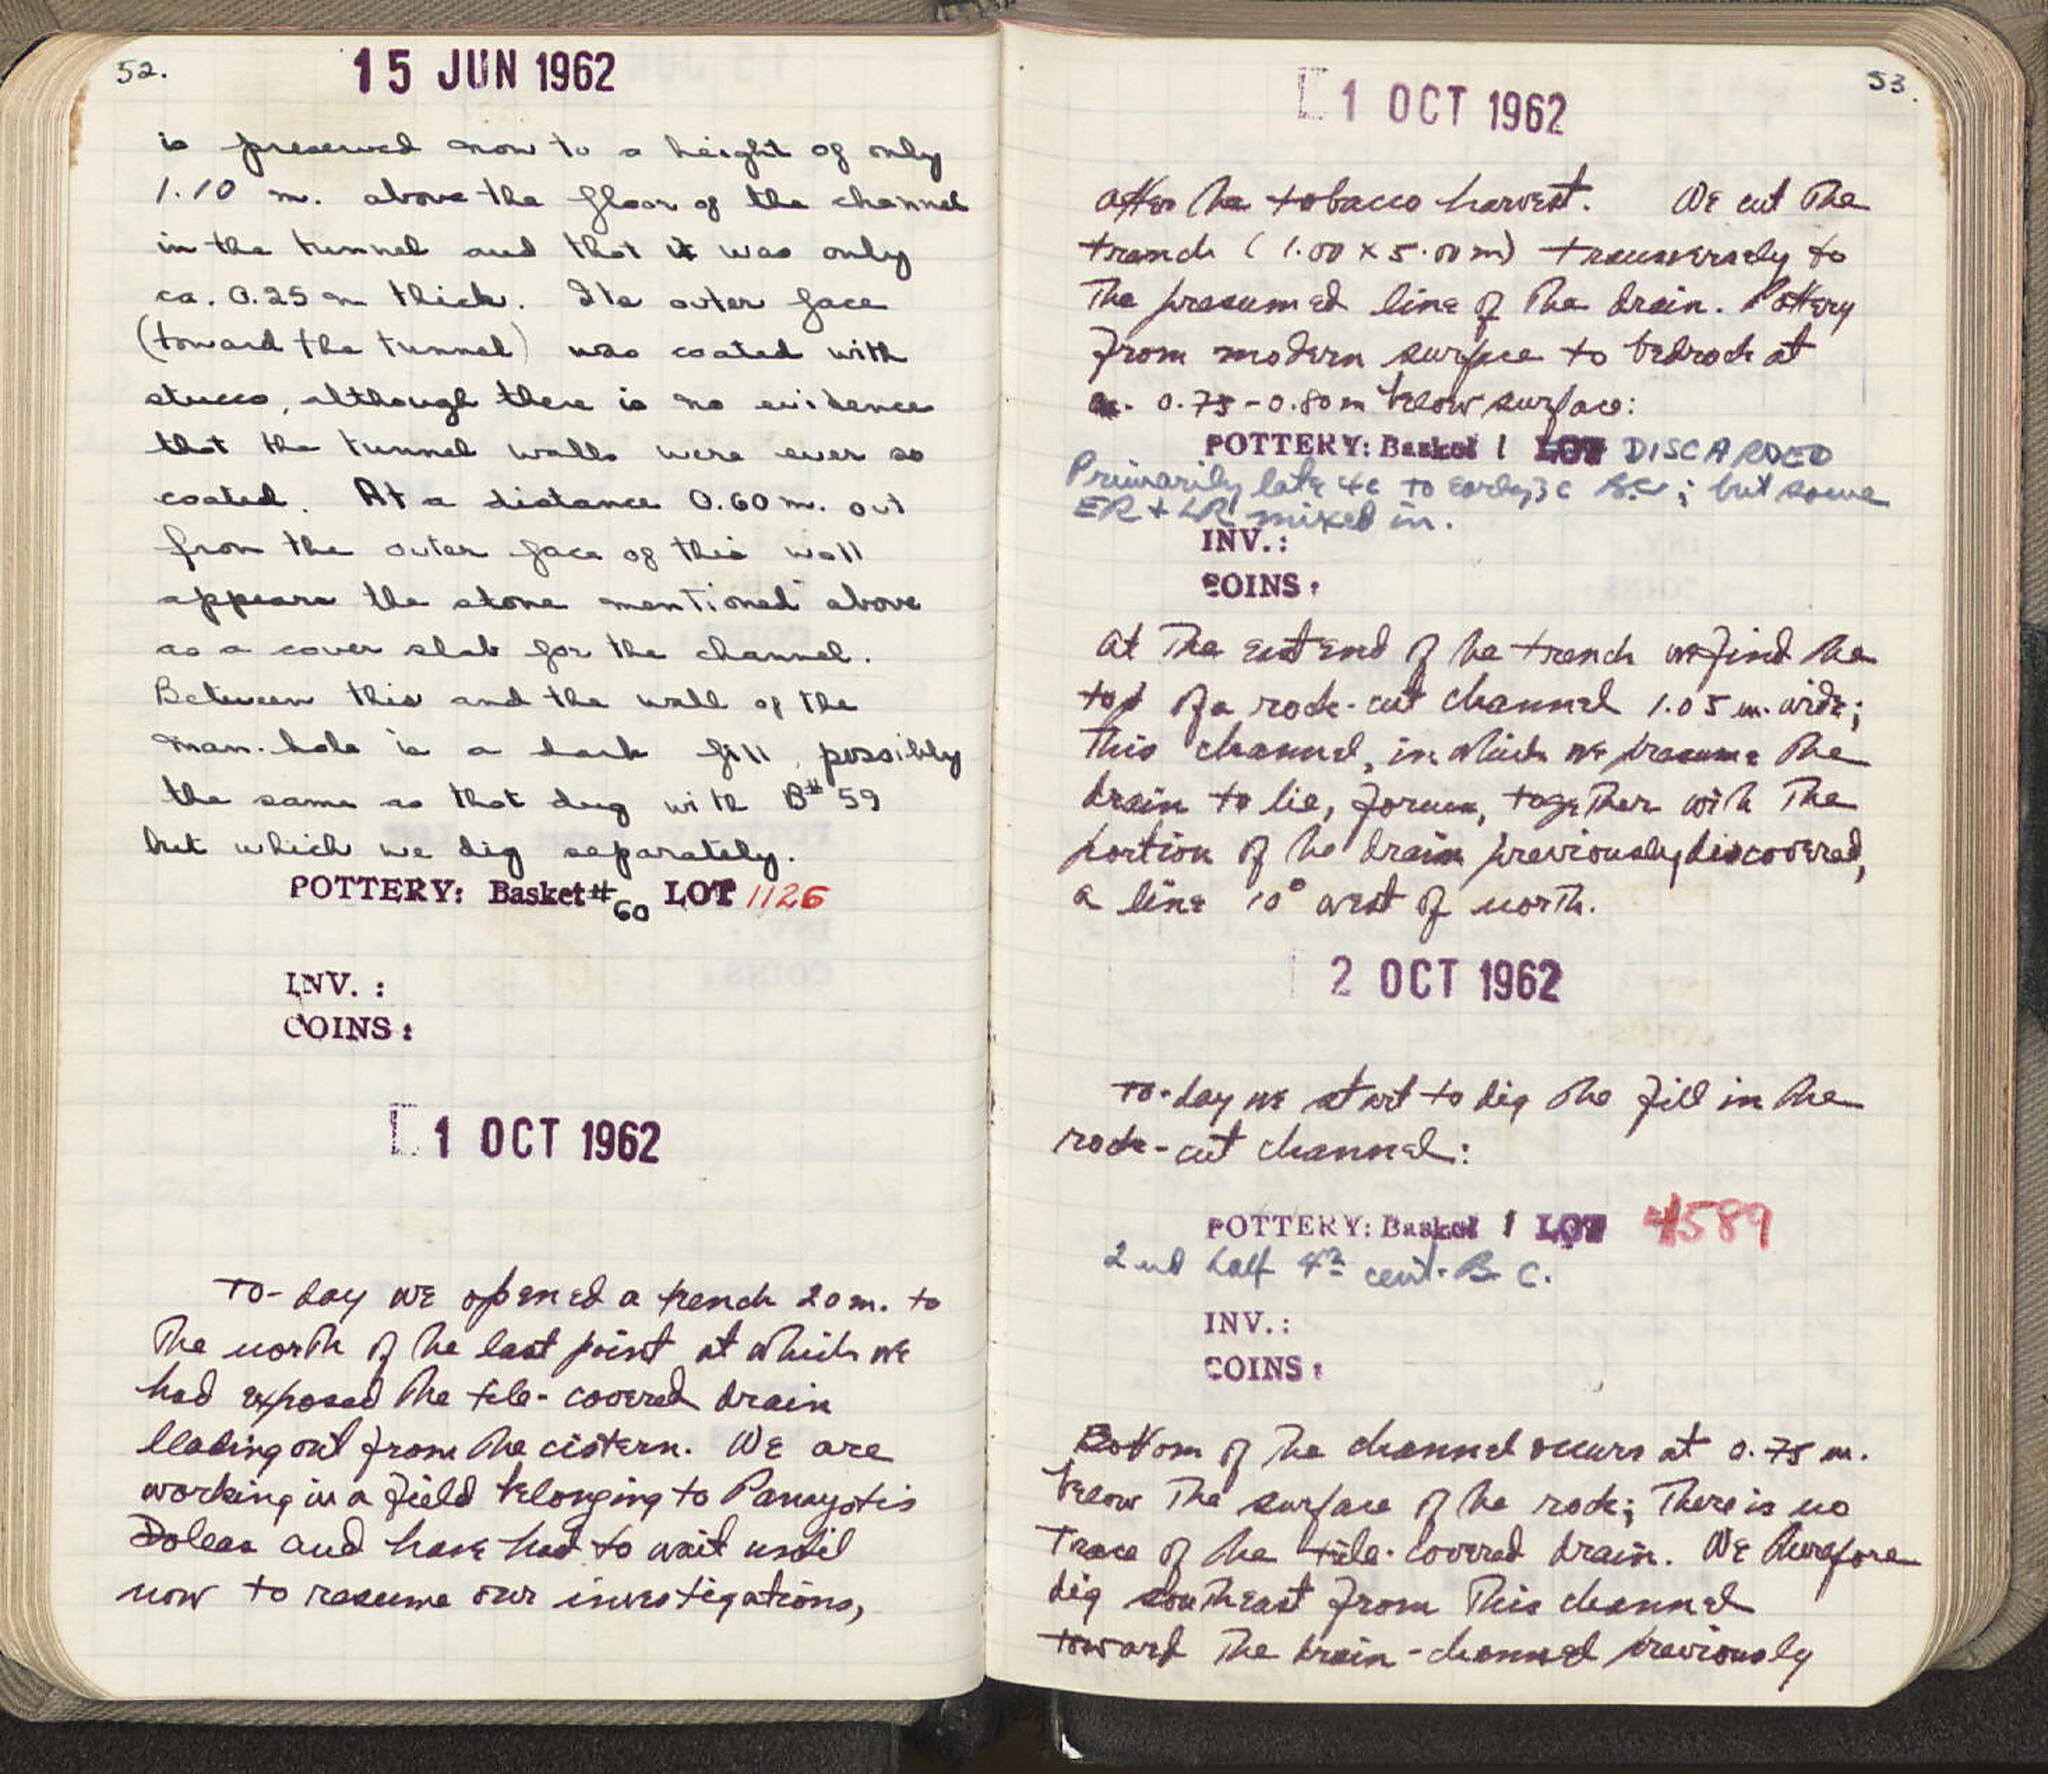 52.
15 JUN 1962
is preserved now to a height of only
1.10 m. above the floor of the channel
in the tunnel and that it was only
ca. 0.25 m thick. Its outer face
(toward the tunnel) was coated with
stucco, although there is no evidence
that the tunnel walls were ever so
coated. At a distance 0.60 m. out
from the outer face of this wall
appears the stone mentioned above
as a cover slab for the channel.
Between this and the wall of the
man-hole is a dark fill, possibly
the same as that dug with B# 59
but which we dig separately.
POTTERY: Basket # 60 LOT 1126
INV. :
COINS :
1 OCT 1962
To-day we opened a trench 20 m. to
the north of the last point at which we
had exposed the tile-covered drain
leading out from the cistern. We are
working in a field belonging to Panayotis
and have had to wait until
now to resume our investigations,
53.
1 OCT 1962
after the tobacco harvest. We cut the
trench (1.00 x 5.00 m) transversely to
the presumed line of the drain. Pottery
from modern surface to bedrock at
ca. 0.75-0.80 m below surface:
POTTERY: Basket 1 LOT DISCARDED
Primarily late 4c to early 3c B.C.; but some
ER + LR mixed in.
INV.:
COINS:
At the east end of the trench we find the
top of a rock-cut channel 1.05 m. wide;
this channel, in which we presume the
drain to lie, forms, together with the
portion of the drain previously discovered,
a line 10° west of north.
2 OCT 1962
To-day we start to dig the fill in the
rock-cut channel:
POTTERY: Basket 1 LOT 4589
2nd half 4th cent. B.C.
INV.:
COINS:
Bottom of the channel occurs at 0.75 m.
below the surface of the rock; there is no
trace of the tile-covered drain. We therefore
dig southeast from this channel
toward the drain-channel previously